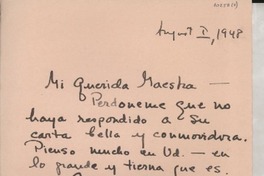 August I, 1948
Mi Querida Maestra —
Perdoneme que no
haya respondido a su
carta bella y conmovedora.
Pienso mucho en Ud. — en
lo grande y tierna que es.